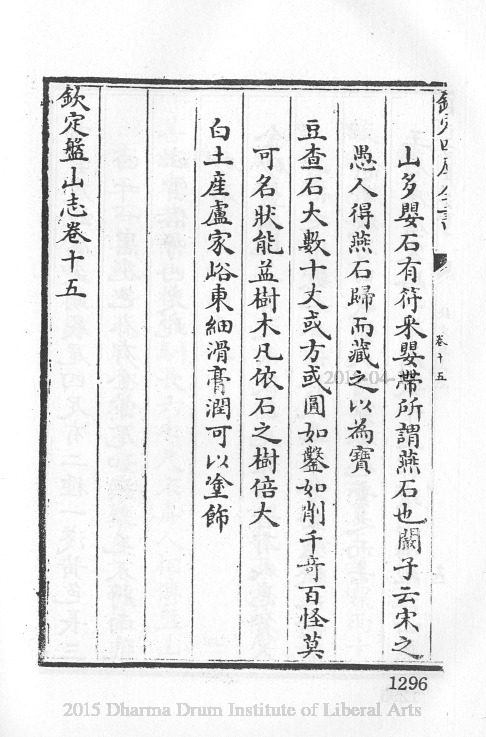 欽定四庫全書
卷十五
山多嬰石有符采嬰帶所謂燕石也闞子云宋之
愚人得燕石歸而藏之以為寶
豆查石大數十丈或方或圓如鑿如削千奇百怪莫
可名狀能益樹木凡依石之樹倍大
白土產盧家峪東細滑膏潤可以塗飾
欽定盤山志卷十五
1296
2015 Dharma Drum Institute of Liberal Arts